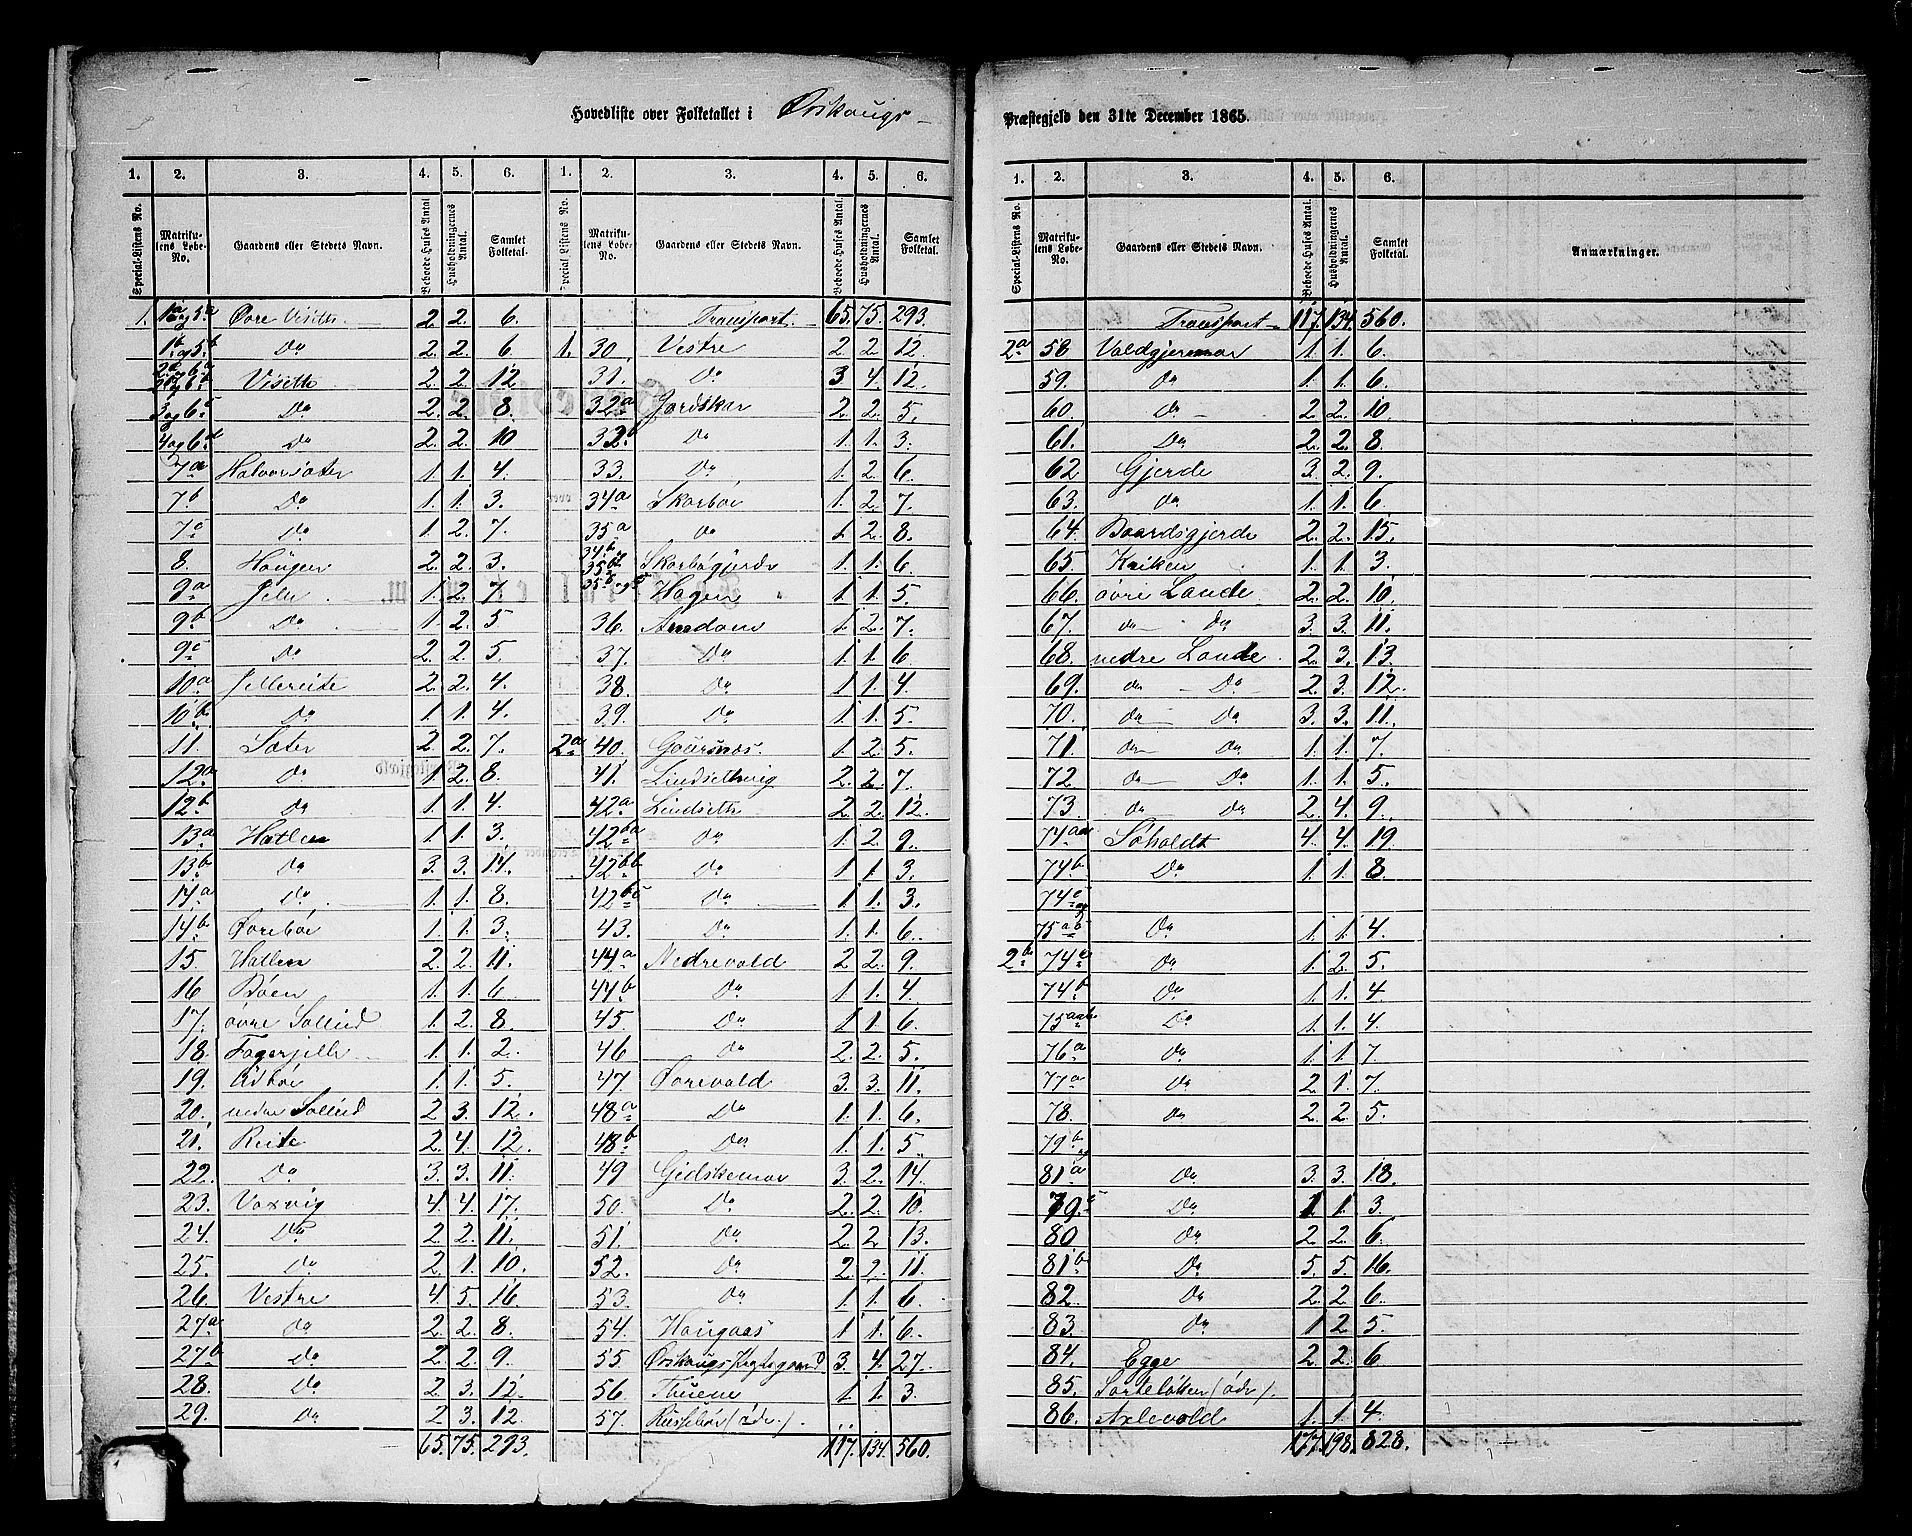 Hovedliste over Folketallet i Ørskougs-
1. 2. 3. 4. 5. 6. 1. 2. 3. 4. 5. 6.
Special-Listens No. Matrikulens Løbe-No. Gaardens eller Stedets Navn. Beboede Huses Antal Husholdningernes Antal. Samlet Folketal. Special Listens No. Matrikulens Løbe-No. Gaardens eller Stedets Navn. Beboede Huses Antal. Husholdningernes Antal. Samlet Folketal.
1. 1a og 5a Øvre Viseth 2. 2. 6.
1b og 5b Do 2. 2. 6
Viseth 2. 2. 12
3 og 6c Do 2. 2. 8.
4 og 6d Do 2. 2. 10
7a Halvorsæter 1. 1. 4.
7b Do 1. 1. 3.
7c Do 1. 2. 7.
8. Haugen 2. 2. 3.
9a Jelle 1. 2. 7
9b Do 1. 2. 5
9c Do 2. 2. 5.
10a Jellereite 2. 2. 4.
10b Do 1. 1. 4.
11. Sæter 2. 2. 7.
12a Do 1. 2. 8.
12b Do 1. 1. 4.
13a Hatlen 1. 1. 3.
13b Do 3. 3. 14.
14a Do 1. 1. 8.
14b Ørrebøe 1. 1. 3.
15. Hatlen 2. 2. 11.
16 Bøen 1. 1. 6
17. øvre Sollied 1. 2. 8.
18. Fagerjelle 1. 1. 2.
19. 1. 1. 5.
20. nedre Sollied 2. 3. 12.
21. Reite 2. 4. 12.
22. Do 3. 3. 11.
23. Vaxvig 4. 4. 17.
24. Do 2. 2. 11.
25. Do 2. 1. 10.
26. Vestre 4. 5. 16.
27a Do 2. 2. 8.
27b Do 2. 2. 9.
28. Do 2. 3. 12.
29. Do 2. 3. 12.
65. 75. 293.
Transport. 65. 75. 293.
1. 30. Vestre 2. 2. 12
31. Do 3 4. 12.
32a Jordskar 2. 2. 5.
32b Do 1. 1. 3.
33. Do 1. 2. 6.
34a Skorbøe 1. 2. 7.
35a Do 1. 2. 8.
34b 35b Skorbøgjerde 1. 1. 6.
Hagen 1. 1. 5.
36. Amdam 1. 2. 7.
37. Do 1. 1. 6
38. Do 1. 1. 4.
39. Do 1. 1. 5.
2a 40. Gausnæs. 1. 2. 5.
41. Lindsethvig 2. 2. 7.
42a Lindseth 2. 2. 12.
42ba Do 1. 2. 9.
42bb Do 1. 1. 3.
42bc Do 1. 1. 3.
43. Do 1. 1. 6.
44a Nedrevold 2 2. 9.
44b Do 1. 1. 4.
45. Do 1 1. 6.
46 Do 2. 2. 5.
47. Ørrevold 3. 3. 11.
48a Do 1. 1. 6.
48b Do 1. 1. 5
49 Gidskemoe 3. 2. 14.
50. Do 2. 2. 10.
51. Do 2. 2 13.
52. Do 2. 2. 11.
53. Do 1. 1. 6
54. Haugaas 1. 1. 6.
55 Ørskougs Præstegaard 3. 4. 27.
56. Tuene 1 1. 3.
57. Russebøe (øde.).
117. 134 560.
Præstegjeld den 31te December 1865.
1. 2. 3. 4. 5. 6.
Special-Listens No. Matrikulens Løbe-No. Gaardens eller Stedets Navn. Beboede Huses Antal. Husholdningernes Antal. Samlet Folketal. Anmærkninger.
Transport 117. 134. 560.
2a 58 Valdgjermoe 1. 1. 6.
59. Do 1. 1. 6.
60. Do 2. 2. 10.
61. Do 2. 2. 8.
62 Gjerde 3. 2. 9.
63. Do 1. 1. 6
64. Baardsgjerde 2. 2. 15.
65. Kriken 1. 1. 3
66. øvre Lande 2. 2. 10.
67. do Do 3. 3. 11.
68. nedre Lande 2. 3. 13.
69. do Do 2. 3. 12.
70. do Do 3. 3. 11.
71. do Do 1. 1. 7.
72 do Do 1. 1. 5.
73. do Do 2. 4. 9.
74aa Søholdt 4. 4. 19.
74b Do 1. 1. 8.
74c og
75ab Do 1. 1. 4.
2b 74a Do 1. 2. 5.
74b Do 1. 1. 4
75aa Do 1. 1. 4.
76a Do 1. 1 7.
77a Do 2. 1. 7.
78. Do 2. 2. 5.
79b og
81a Do 3. 3. 18.
79c Do 1. 1. 3.
80 Do 2. 2. 6.
81b Do 5. 5. 16.
82. Do 2. 2. 6.
83. Do 1 2. 5.
84. Egge 2. 2. 6
85. Sorteløken (øde).
86. Axlevold 1. 1. 4.
177. 198. 828.